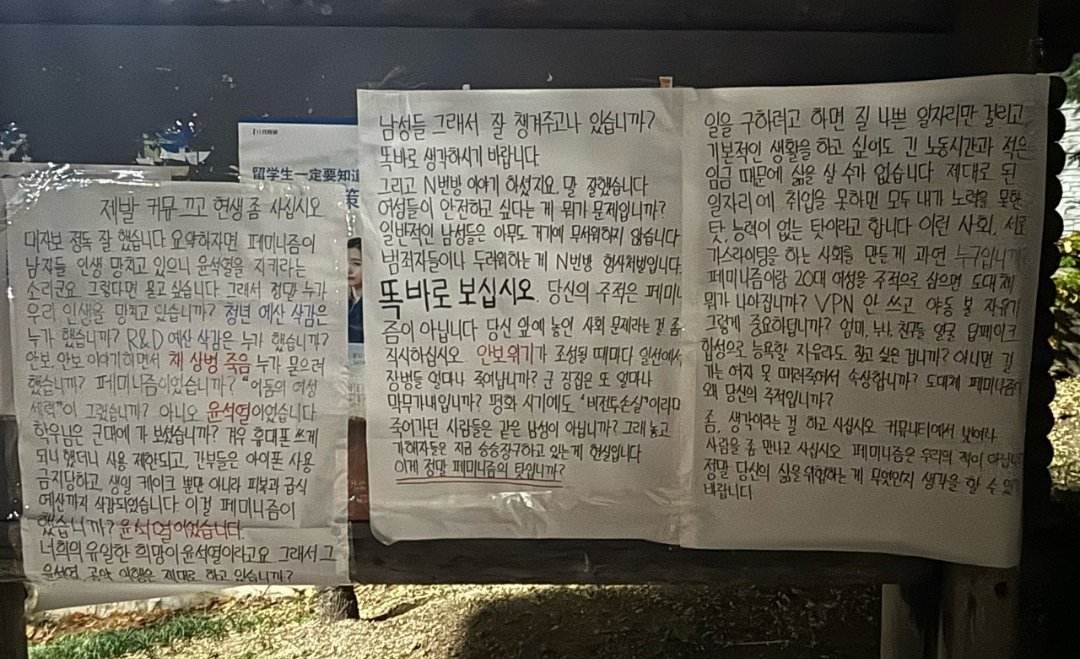 留学生一定要知道
策
제발 커뮤 끄고 현생 좀 사십시오
대자보 정독 잘 했습니다 요약하자면 페미니즘이
남자들 인생 망치고 있으니 윤석열을 지키라는
소리군요. 그렇다면 묻고 싶습니다 그래서 정말 누가
우리 인생을 망치고 있습니까? 청년 예산 삭감은
누가 했습니까? R&D 예산 삭감은 누가 했습니까?
안보, 안보 이야기하면서 채 상병 죽음 누가 묻으려
했습니까? 페미니즘이었습니까? "어둠의 여성
세력"이 그랬습니까? 아니오 윤석열이었습니다
학우님은 군대에 가 보셨습니까? 겨우 휴대폰 쓰게
되나 했더니 사용 제한되고, 간부들은 아이폰 사용
금지당하고, 생일 케이크 뿐만 아니라 피복과 급식
예산까지 삭감되었습니다. 이걸 페미니즘이
했습니까? 윤석열이었습니다.
너희의 유일한 희망이 윤석열이라고요. 그래서 그
윤석열, 공약 이행은 제대로 하고 있습니까?
남성들 그래서 잘 챙겨주고나 있습니까?
똑바로 생각하시기 바랍니다
그리고 N번방 이야기 하셨지요. 말 잘했습니다
여성들이 안전하고 싶다는 게 뭐가 문제입니까?
일반적인 남성들은 아무도 거기에 무서워하지 않습니다
범죄자들이나 두려워하는 게 N번방 형사처벌입니다
똑바로 보십시오. 당신의 주적은 페미니
즘이 아닙니다 당신 앞에 놓인 사회 문제라는 걸 좀
직시하십시오. 안보위기가 조성될 때마다 일선에서
장병들 얼마나 죽어납니까? 군 징집은 또 얼마나
막무가내입니까? 평화 시기에도 "비전투손실"이라며
죽어가던 사람들은 같은 남성이 아닙니까? 그래 놓고
가해자들은 지금 승승장구하고 있는 게 현실입니다
이게 정말 페미니즘의 탓입니까?
일을 구하려고 하면 질 나쁜 일자리만 걸리고
기본적인 생활을 하고 싶어도 긴 노동시간과 적은
임금 때문에 삶을 살 수가 없습니다 제대로 된
일자리에 취업을 못하면 모두 내가 노력을 못한
탓, 능력이 없는 탓이라고 합니다 이런 사회, 서로
가스라이팅을 하는 사회를 만든게 과연 누구입니까?
페미니즘이랑 20대 여성을 주적으로 삼으면 도대체
뭐가 나아집니까? VPN 안 쓰고 야동 볼 자유가
그렇게 중요하답니까? 엄마, 누나, 친구들 얼굴 딥페이크
합성으로 능욕할 자유라도 찾고 싶은 겁니까? 아니면 길
가는 여자 못 때려죽여서 속상합니까? 도대체 페미니즘이
왜 당신의 주적입니까?
좀, 생각이라는 걸 하고 사십시오 커뮤니티에서 벗어나
사람을 좀 만나고 사십시오 페미니즘은 우리의 적이 아닙니다
정말 당신의 삶을 위협하는 게 무엇인지 생각을 할 수 있
바랍니다